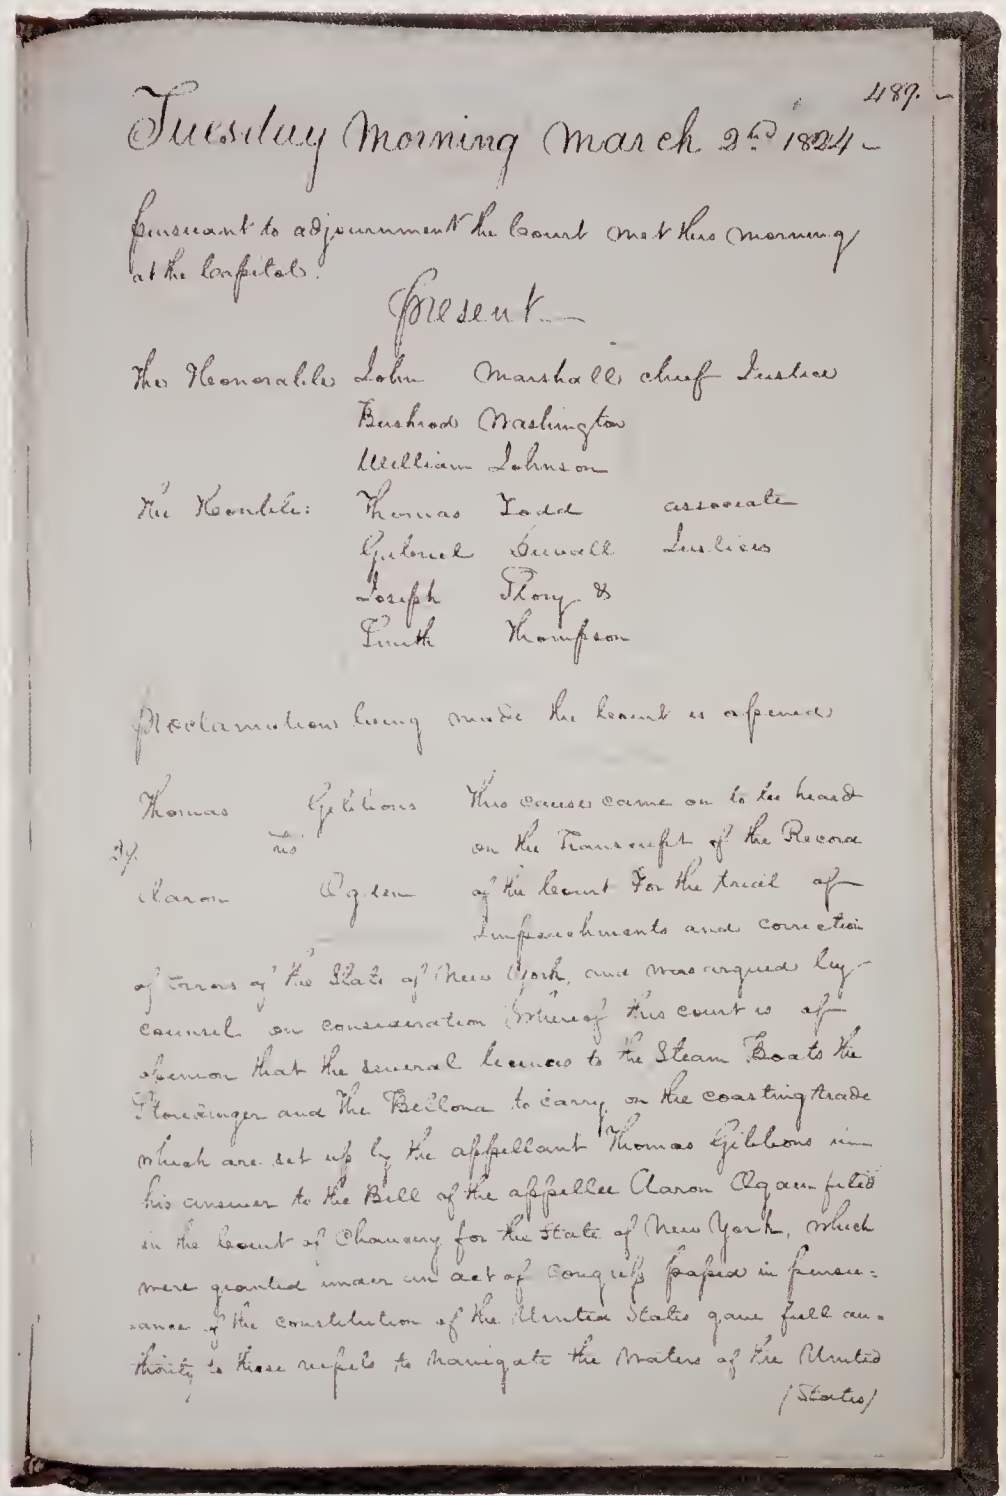 489.
Tuesday Morning March 2nd 1824
Pursuant to adjournment the Court met this morning
at the Capitol.
Present
The Honorable John Marshall chief Justice
Bushrod Washington
William Johnson
The Honble: Thomas Todd associate
Gabriel Duvall Justices
Joseph Story &
Smith Thompson
Proclamation being made the Court is opened
Thomas Gibbons This cause came on to be heard
vs on the Transcript of the Record
Aaron Ogden of the Court For the trial of
Impeachments and correction
of Errors of the State of New York, and was argued by
counsel on consideration whereof this court is of
opinion that the several licenses to the Steam Boats the
Stoudinger and The Bellona to carry on the coasting trade
which are set up by the appellant Thomas Gibbons in
his answer to the Bill of the appellee Aaron Ogden filed
in the Court of Chancery for the State of New York, which
were granted under an act of Congress passed in pursu=
=ance of the constitution of the United States gave full au=
thority to those vessels to navigate the waters of the United
(States)